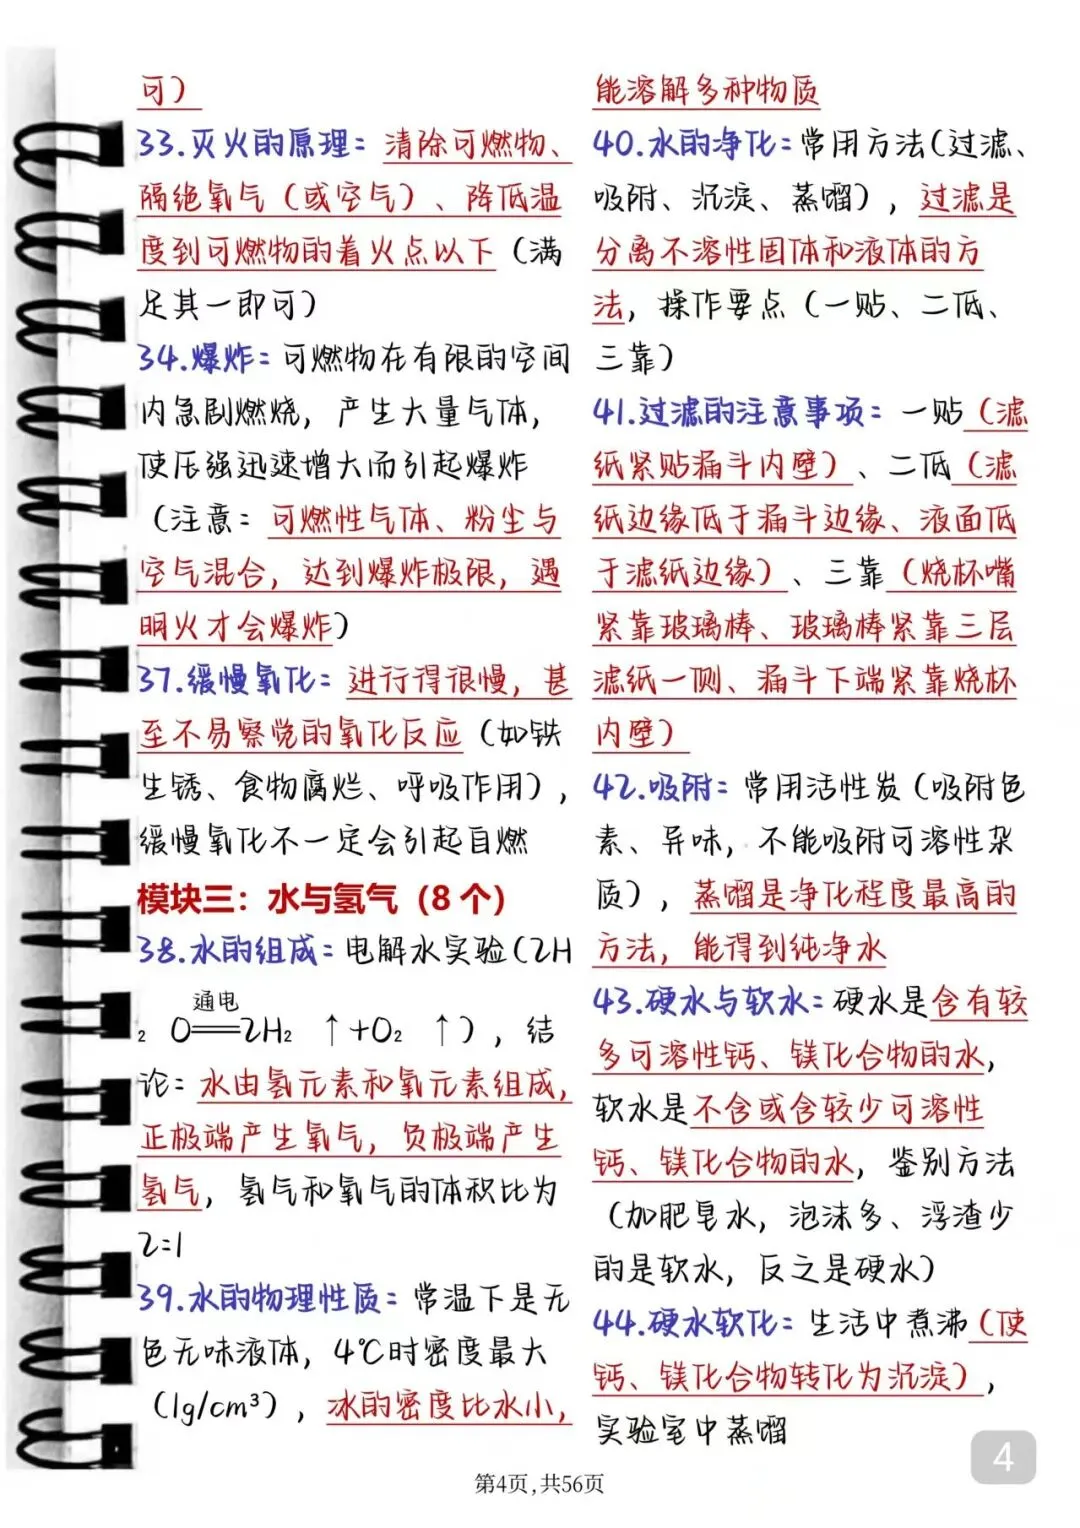 可）
33.灭火的原理：清除可燃物、
隔绝氧气（或空气）、降低温
度到可燃物的着火点以下（满
足其一即可）
34.爆炸：可燃物在有限的空间
内急剧燃烧，产生大量气体，
使压强迅速增大而引起爆炸
（注意：可燃性气体、粉尘与
空气混合，达到爆炸极限，遇
明火才会爆炸）
37.缓慢氧化：进行得很慢，甚
至不易察觉的氧化反应（如铁
生锈、食物腐烂、呼吸作用），
缓慢氧化不一定会引起自燃
模块三：水与氢气（8 个）
38.水的组成：电解水实验（2H
通电
₂ O══2H₂ ↑+O₂ ↑），结
论：水由氢元素和氧元素组成，
正极端产生氧气，负极端产生
氢气，氢气和氧气的体积比为
2:1
39.水的物理性质：常温下是无
色无味液体，4℃时密度最大
（1g/cm³），冰的密度比水小，
能溶解多种物质
40.水的净化：常用方法（过滤、
吸附、沉淀、蒸馏），过滤是
分离不溶性固体和液体的方
法，操作要点（一贴、二低、
三靠）
41.过滤的注意事项：一贴（滤
纸紧贴漏斗内壁）、二低（滤
纸边缘低于漏斗边缘、液面低
于滤纸边缘）、三靠（烧杯嘴
紧靠玻璃棒、玻璃棒紧靠三层
滤纸一侧、漏斗下端紧靠烧杯
内壁）
42.吸附：常用活性炭（吸附色
素、异味，不能吸附可溶性杂
质），蒸馏是净化程度最高的
方法，能得到纯净水
43.硬水与软水：硬水是含有较
多可溶性钙、镁化合物的水，
软水是不含或含较少可溶性
钙、镁化合物的水，鉴别方法
（加肥皂水，泡沫多、浮渣少
的是软水，反之是硬水）
44.硬水软化：生活中煮沸（使
钙、镁化合物转化为沉淀），
实验室中蒸馏
4
第4页,共56页